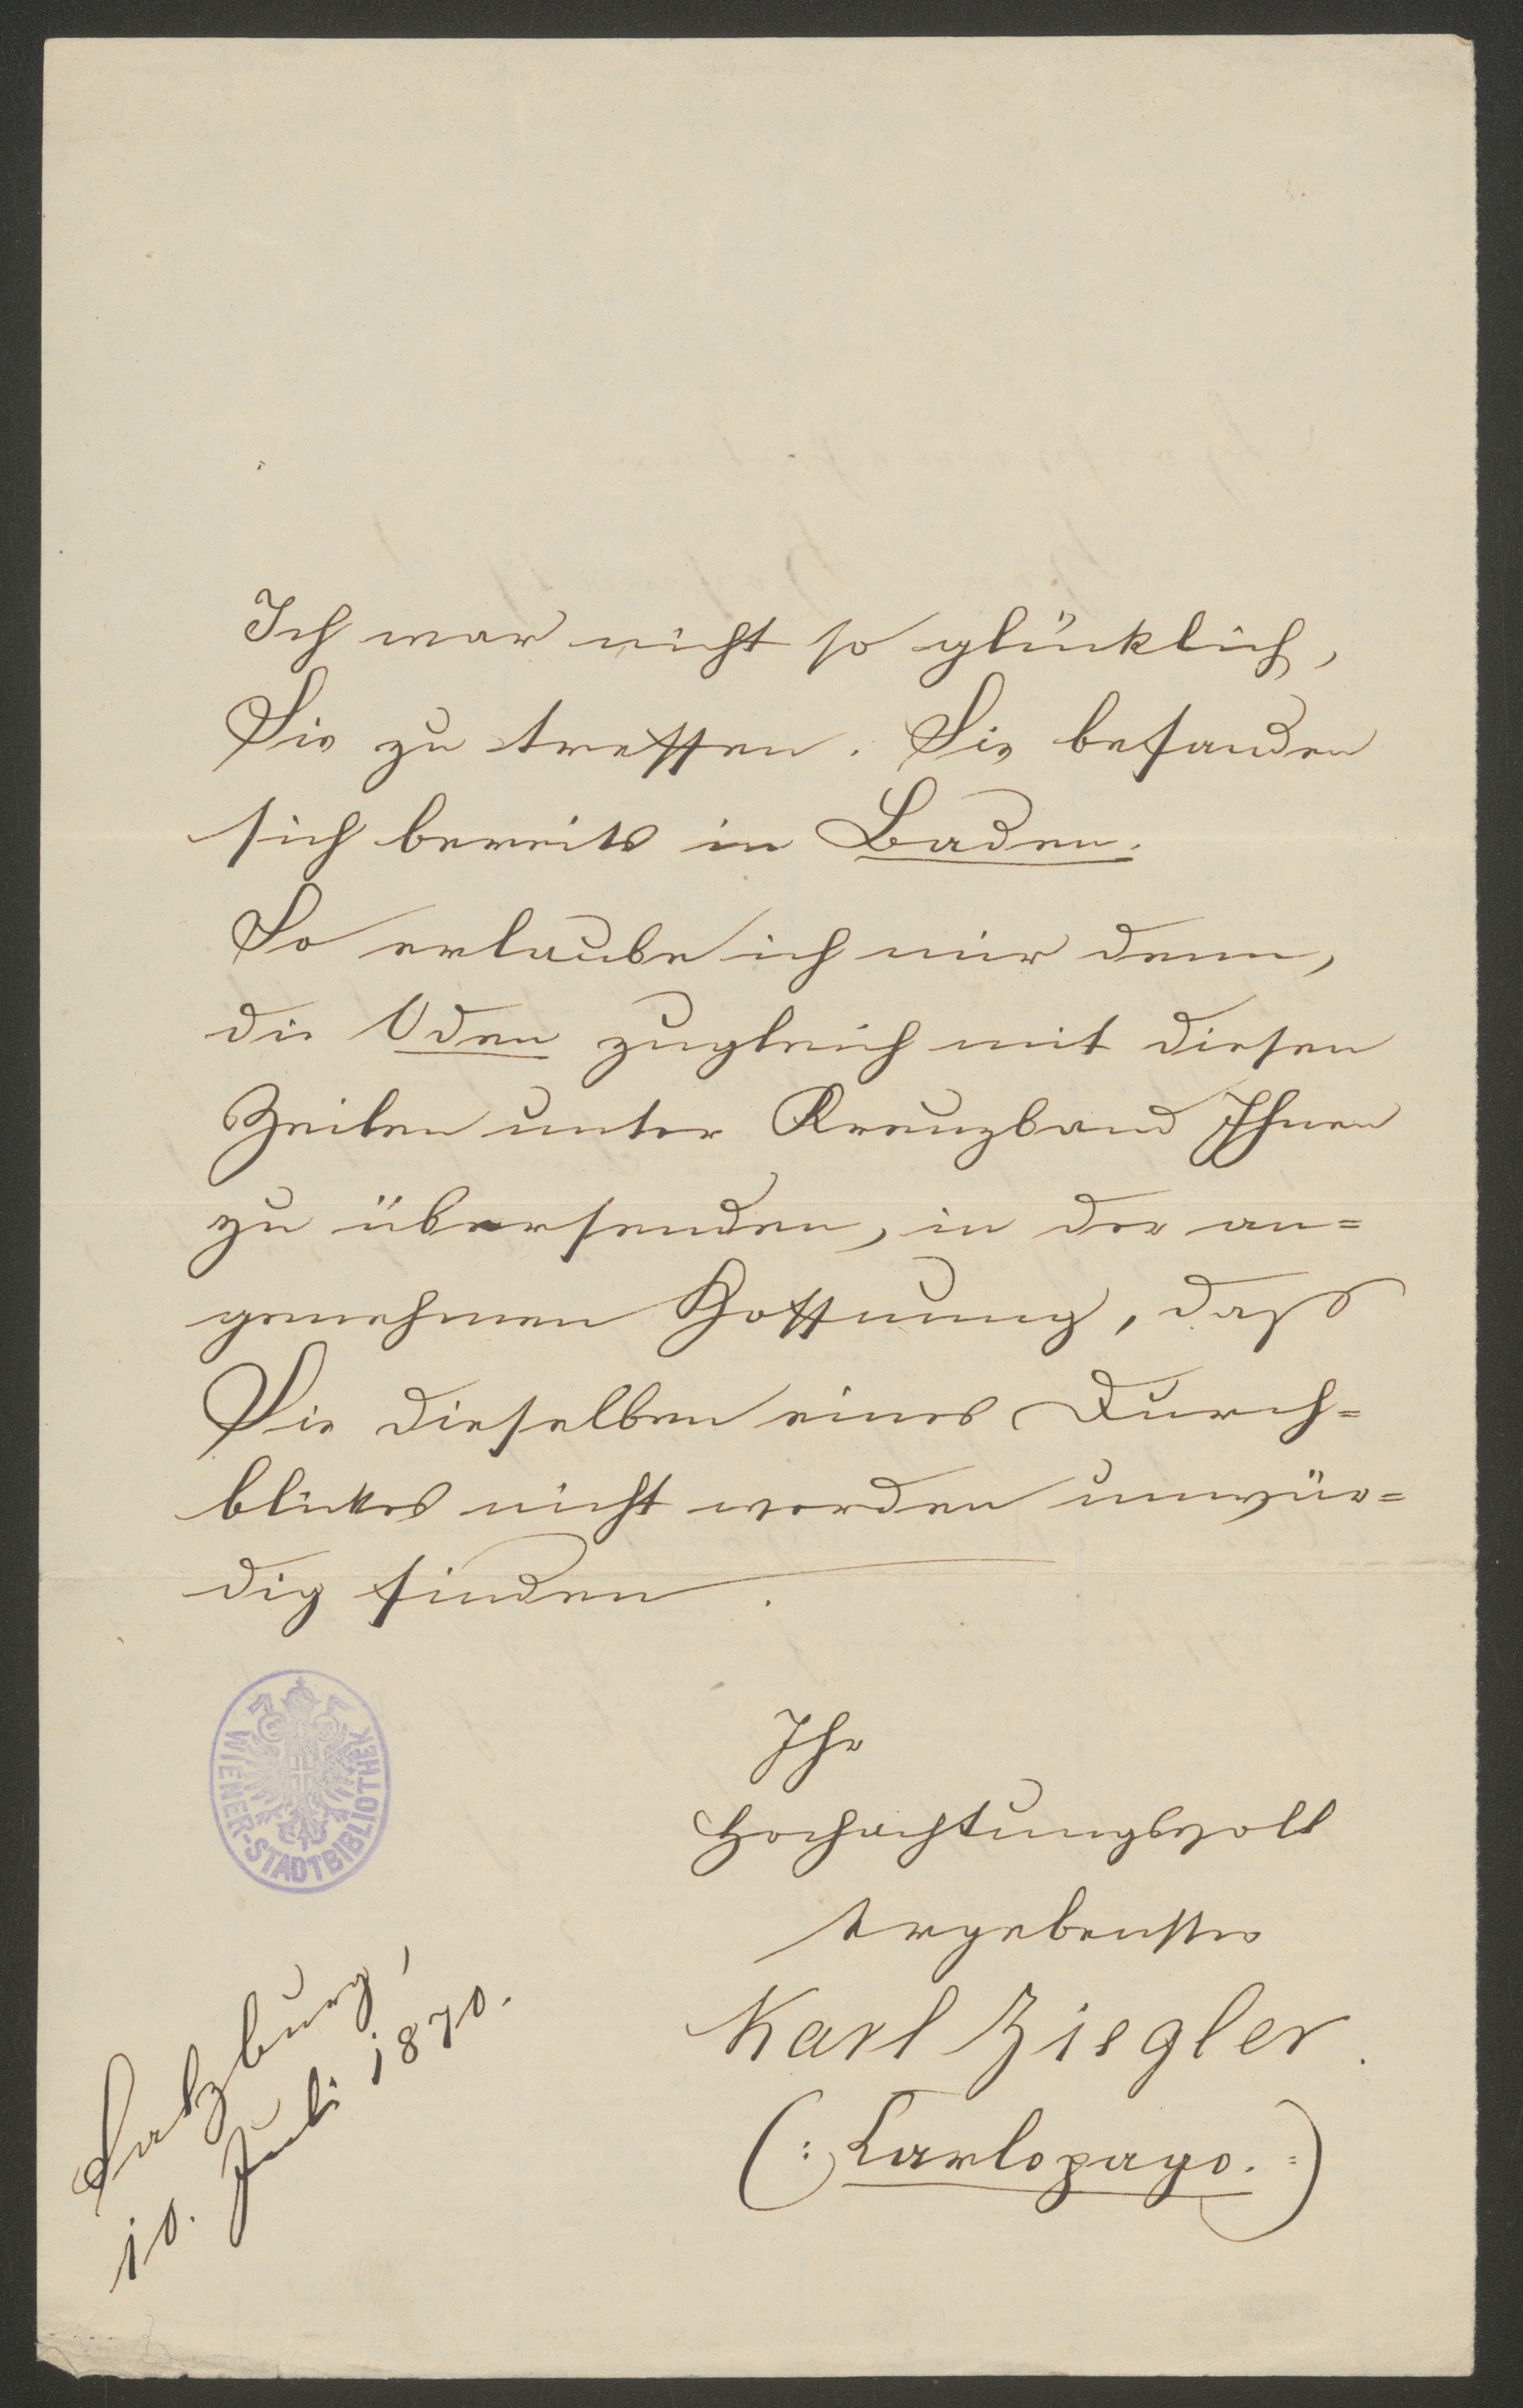 Ich war nicht so glücklich,
Sie zu treffen. Sie befanden
sich bereits in Baden.
So erlaube ich mir denn,
die Oden zugleich mit diesen
Zeilen unter Kreuzband Ihnen
zu übersenden, in der an=
genehmen Hoffnung, dass
Sie dieselben eines Durch=
blickes nicht werden unwür=
dig finden.
WIENER-STADTBIBLIOTHEK
Ihr
Hochachtungsvoll
Ergebenster
Karl Ziegler.
(: Carlopago. :)
Salzburg,
10. Juli 1870.